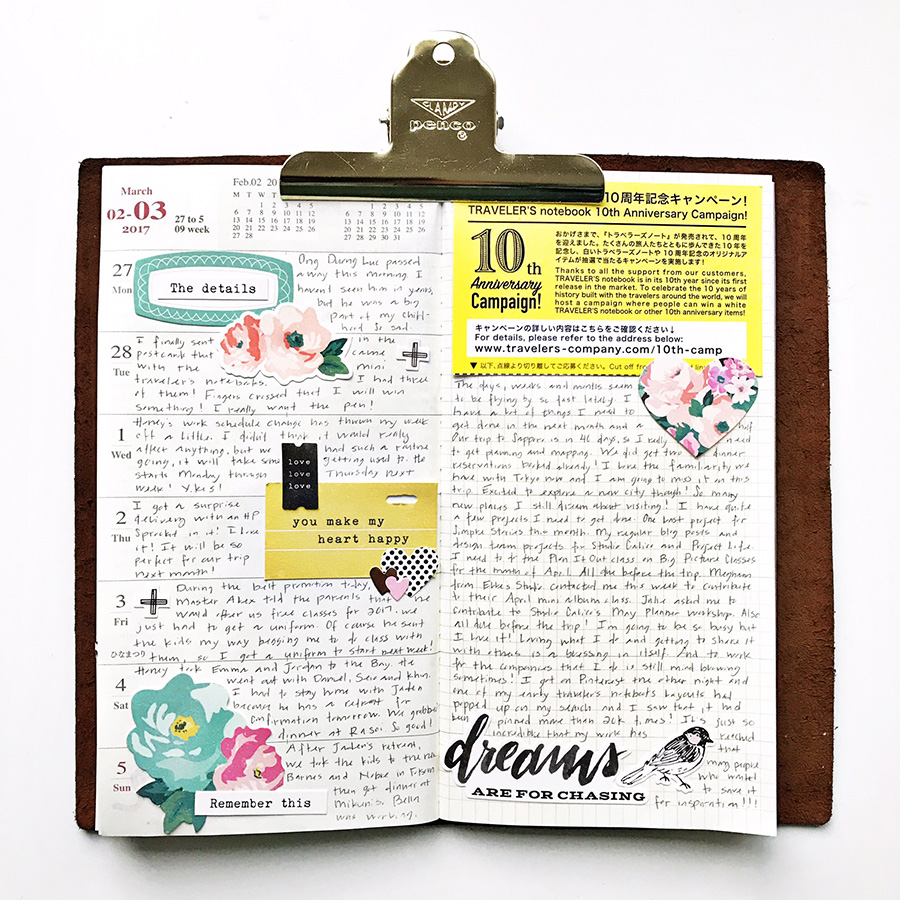 CLAMPY
penco
March
02-03
2017
27 to 5
09 week
Feb.02 20
M T W T F S S
1 2 3 4 5
6 7 8 9 10 11 12
13 14 15 16 17 18 19
20 21 22 23 24 25 26
27 28
27
Mon
The details
passed
away this morning. I
haven't seen him in years,
but he was a big
part of my child-
hood. So sad.
28
Tue
I finally sent in the
postcard that came
with the mini
traveler's notebooks. I had three
of them! Fingers crossed that I will win
something! I really want the pen!
1
Wed
Honey's work schedule change has thrown my week
off a little. I didn't think it would really
affect anything, but we had such a routine
going, it will take some getting used to. He
starts Monday through Thursday next
week! Yikes!
love
love
love
2
Thu
I got a surprise
delivery with an HP
Sprocket in it! I love
it! It will be so
perfect for our trip
next month!
you make my
heart happy
3
Fri
ひなまつり
During the belt promotion today,
Master Aken told the parents that
would offer us free classes for 2017. We
just had to get a uniform. Of course he sent
the kids my way begging me to do class with
them, so I got a uniform to start next week!
4
Sat
Honey took Emma and Jordan to the Bay. He
went out with Daniel, and Khun.
I had to stay home with Jaden
because he has a retreat for
confirmation tomorrow. We grabbed
dinner at Rasoi. So good!
5
Sun
After Jaden's retreat,
we took the kids to the
Barnes and Noble in Folsom
then got dinner at
Mikunis. Bella
was working.
Remember this
10周年記念キャンペーン!
TRAVELER'S notebook 10th Anniversary Campaign!
10th
Anniversary
Campaign!
おかげさまで、「トラベラーズノート」が発売されて、10周年
を迎えました。たくさんの旅人たちとともに歩んできた10年を
記念し、白いトラベラーズノートや10周年記念のオリジナルア
イテムが抽選で当たるキャンペーンを実施します!
Thanks to all the support from our customers,
TRAVELER'S notebook is in its 10th year since its first
release in the market. To celebrate the 10 years of
history built with the travelers around the world, we will
host a campaign where people can win a white
TRAVELER'S notebook or other 10th anniversary items!
キャンペーンの詳しい内容はこちらをご確認ください↓
For details, please refer to the address below:
www.travelers-company.com/10th-camp
▼以下、点線より切り離してご応募ください。 Cut off from line
The days, weeks and months seem
to be flying by so fast lately. I
have a lot of things I need to
get done in the next month and a half.
Our trip to Sapporo is in 46 days, so I really need
to get planning and mapping. We did get two dinner
reservations booked already! I love the familiarity we
have with Tokyo now and I am going to miss it on this
trip. Excited to explore a new city though! So many
new places I still dream about visiting! I have quite
a few projects I need to get done. One last project for
Simple Stories this month. My regular blog posts and
design team projects for Studio Calico and Perfect Life.
I need to the Plan It Out class on Big Picture Classes
for the month of April. All due before the trip. Meghann
from Elle's Studio contacted me this week to contribute
to their April mini album class. Julie asked me to
contribute to Studio Calico's May Planner workshop. Also
all due before the trip! I'm going to be so busy but
I love it! Loving what I do and getting to share it
with others is a blessing in itself. And to work
for the companies that I do is still mind blowing
sometimes! I got on Pinterest the other night and
one of my early traveler's notebook layouts had
popped up on my search and I saw that it had
been pinned more than 20k times! It's just so
incredible that my work has reached
that
many people
who wanted
to save it
for inspiration!!!
dreams
ARE FOR CHASING